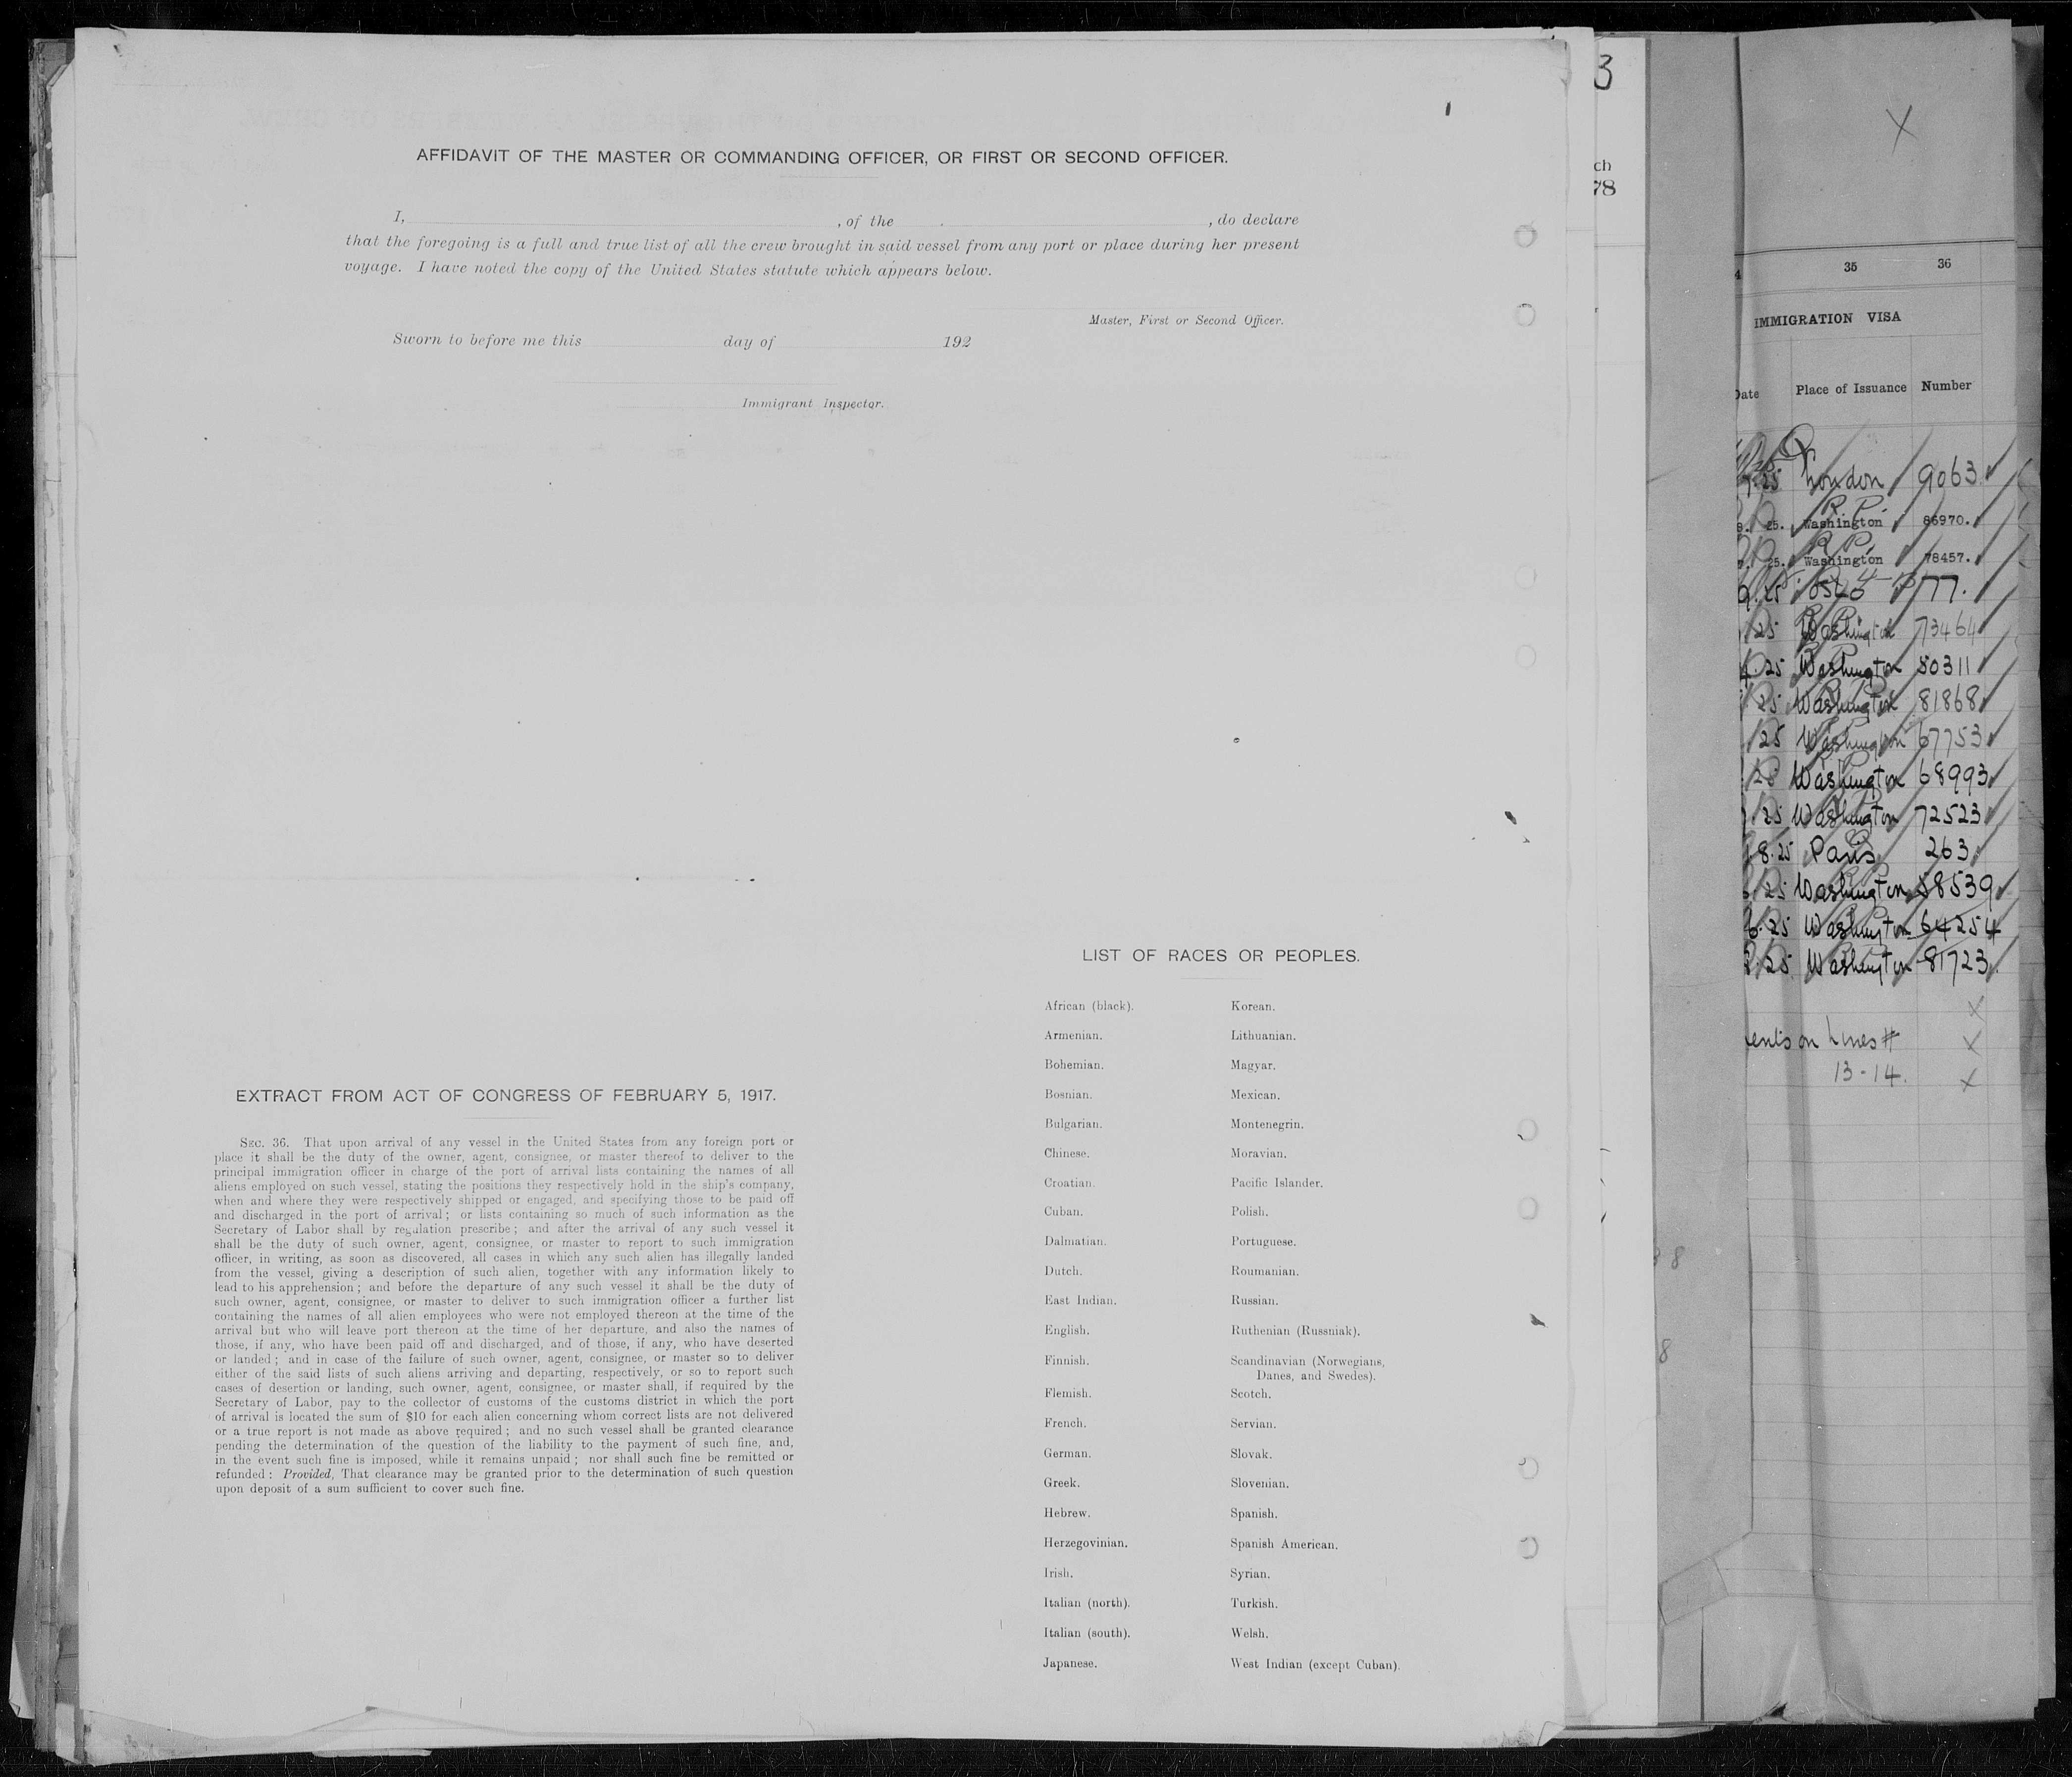 AFFIDAVIT OF THE MASTER OR COMMANDING OFFICER, OR FIRST OR SECOND OFFICER.
I, , of the , do declare
that the foregoing is a full and true list of all the crew brought in said vessel from any port or place during her present
voyage. I have noted the copy of the United States statute which appears below.
Master, First or Second Officer.
Sworn to before me this day of 192
Immigrant Inspector.
EXTRACT FROM ACT OF CONGRESS OF FEBRUARY 5, 1917.
SEC. 36. That upon arrival of any vessel in the United States from any foreign port or
place it shall be the duty of the owner, agent, consignee, or master thereof to deliver to the
principal immigration officer in charge of the port of arrival lists containing the names of all
aliens employed on such vessel, stating the positions they respectively hold in the ship's company,
when and where they were respectively shipped or engaged, and specifying those to be paid off
and discharged in the port of arrival; or lists containing so much of such information as the
Secretary of Labor shall by regulation prescribe; and after the arrival of any such vessel it
shall be the duty of such owner, agent, consignee, or master to report to such immigration
officer, in writing, as soon as discovered, all cases in which any such alien has illegally landed
from the vessel, giving a description of such alien, together with any information likely to
lead to his apprehension; and before the departure of any such vessel it shall be the duty of
such owner, agent, consignee, or master to deliver to such immigration officer a further list
containing the names of all alien employees who were not employed thereon at the time of the
arrival but who will leave port thereon at the time of her departure, and also the names of
those, if any, who have been paid off and discharged, and of those, if any, who have deserted
or landed; and in case of the failure of such owner, agent, consignee, or master so to deliver
either of the said lists of such aliens arriving and departing, respectively, or so to report such
cases of desertion or landing, such owner, agent, consignee, or master shall, if required by the
Secretary of Labor, pay to the collector of customs of the customs district in which the port
of arrival is located the sum of $10 for each alien concerning whom correct lists are not delivered
or a true report is not made as above required; and no such vessel shall be granted clearance
pending the determination of the question of the liability to the payment of such fine, and,
in the event such fine is imposed, while it remains unpaid; nor shall such fine be remitted or
refunded: Provided, That clearance may be granted prior to the determination of such question
upon deposit of a sum sufficient to cover such fine.
LIST OF RACES OR PEOPLES.
African (black). Korean.
Armenian. Lithuanian.
Bohemian. Magyar.
Bosnian. Mexican.
Bulgarian. Montenegrin.
Chinese. Moravian.
Croatian. Pacific Islander.
Cuban. Polish.
Dalmatian. Portuguese.
Dutch. Roumanian.
East Indian. Russian.
English. Ruthenian (Russniak).
Finnish. Scandinavian (Norwegians,
Danes, and Swedes).
Flemish. Scotch.
French. Servian.
German. Slovak.
Greek. Slovenian.
Hebrew. Spanish.
Herzegovinian. Spanish American.
Irish. Syrian.
Italian (north). Turkish.
Italian (south). Welsh.
Japanese. West Indian (except Cuban).
3
ch
78
X
35 36
IMMIGRATION VISA
Date Place of Issuance Number
25 London 9063
R.P.
25. Washington 86970.
R.P.
25. Washington 78457.
9.25 Oslo 77.
25 Washington 73464
25 Washington 80311
25 Washington 81868
25 Washington 67753
25 Washington 68993
25 Washington 72523
8.25 Paris 263
25 Washington 58539
6.25 Washington 64254
25 Washington 81723
on Lines #
13-14.
X
X
X
8
8